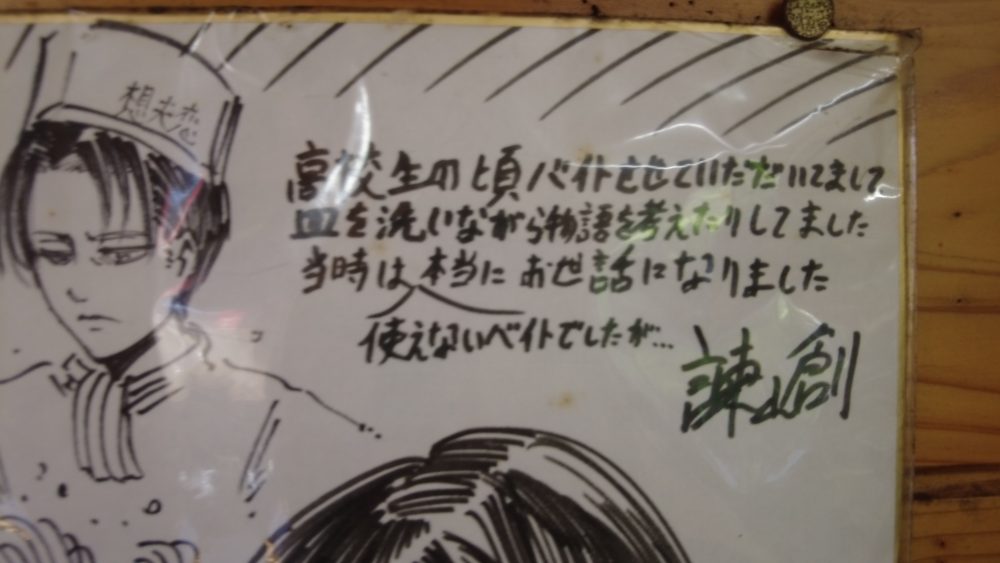 想夫恋
高校生の頃バイトさせていただいてまして
皿を洗いながら物語を考えたりしてました
当時は本当にお世話になりました
使えないバイトでしたが…
諫山創